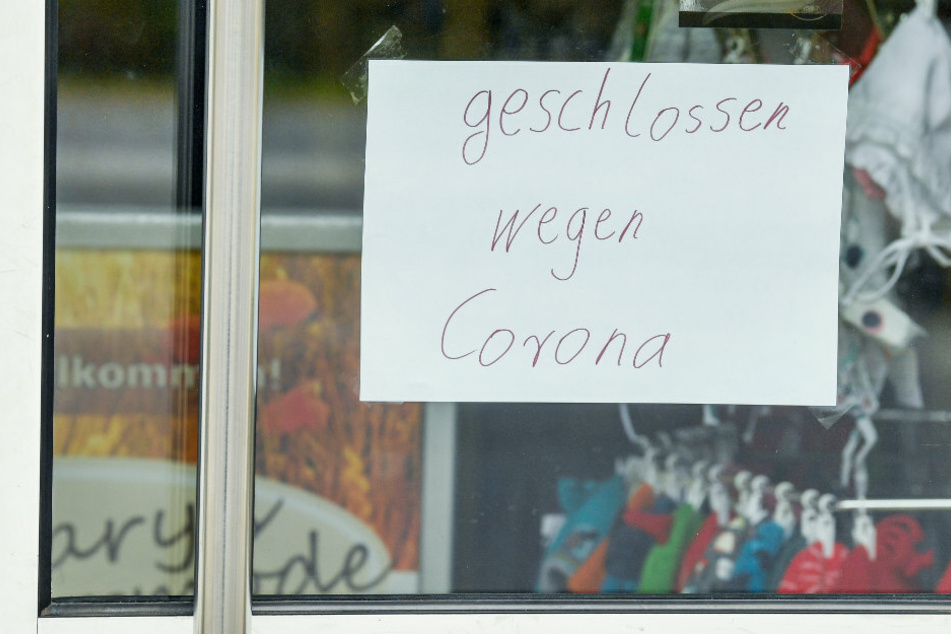 geschlossen
wegen
Corona
lkomm
n!
ary's
ode